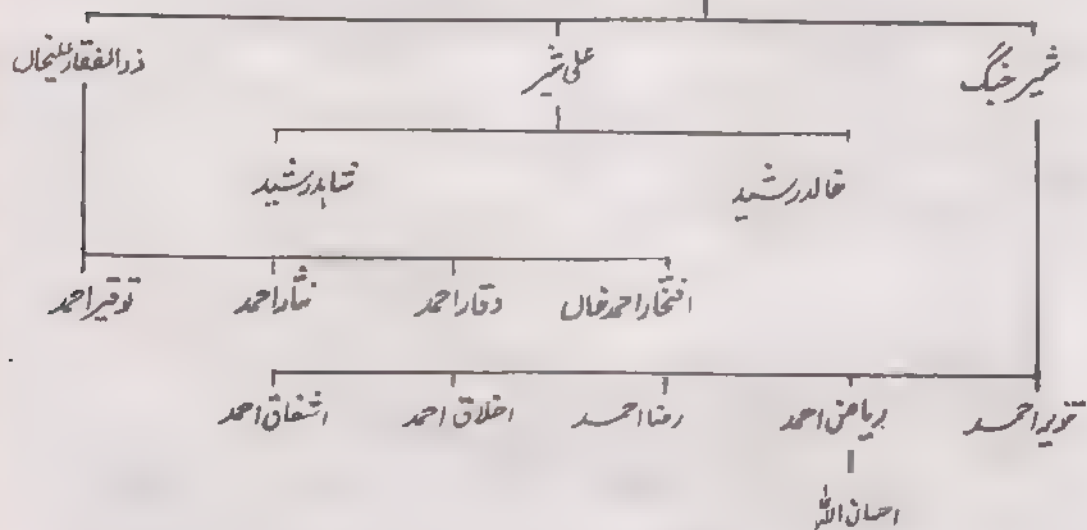 شیر جنگ علی شیر ذوالفقار علیخاں
خالد رشید شاہد رشید
افتخار احمد خاں وقار احمد نثار احمد توقیر احمد
تنویر احمد ریاض احمد رضا احمد اخلاق احمد اشفاق احمد
احسان اللہ